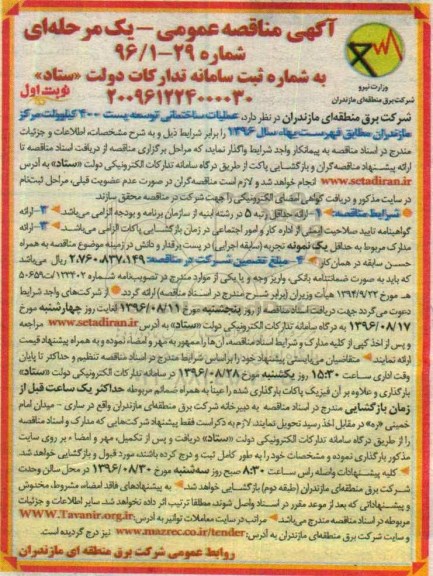 آگهی مناقصه عمومی - یک مرحله‌ای
شماره ۲۹-۹۶/۱
به شماره ثبت سامانه تدارکات دولت «ستاد»
۲۰۰۹۶۱۲۲۴۰۰۰۰۳۰
نوبت اول
وزارت نیرو
شرکت برق منطقه‌ای مازندران
شرکت برق منطقه‌ای مازندران در نظر دارد، عملیات ساختمانی توسعه پست ۴۰۰ کیلوولت مرکز
مازندران مطابق فهرست بهاء سال ۱۳۹۶ را برابر شرایط ذیل و به شرح مشخصات، اطلاعات و جزئیات
مندرج در اسناد مناقصه به پیمانکار واجد شرایط واگذار نماید، که مراحل برگزاری مناقصه از دریافت اسناد مناقصه تا
ارائه پیشنهاد مناقصه‌گران و بازگشایی پاکت از طریق درگاه سامانه تدارکات الکترونیکی دولت «ستاد» به آدرس
www.setadiran.ir انجام خواهد شد و لازم است مناقصه‌گران در صورت عدم عضویت قبلی، مراحل ثبت‌نام
در سایت مذکور و دریافت گواهی امضای الکترونیکی را جهت شرکت در مناقصه محقق سازند.
شرایط مناقصه: ۱- ارائه حداقل رتبه ۵ در رشته ابنیه از سازمان برنامه و بودجه الزامی می‌باشد. ۲- ارائه
گواهینامه تایید صلاحیت ایمنی از اداره کار و امور اجتماعی در زمان بازگشایی پاکات الزامی می‌باشد. ۳- ارائه
مدارک مربوط به حداقل یک نمونه تجربه (سابقه اجرایی) در پست یرفتار و دانش در زمینه موضوع مناقصه به همراه
حسن سابقه در همان کار. ۴- مبلغ تضمین شرکت در مناقصه: ۲،۷۶۰،۸۳۷،۱۴۹ ریال می‌باشد
که باید به صورت ضمانتنامه بانکی، واریز وجه و یا یکی از موارد مندرج در تصویب‌نامه شماره ۱۲۳۴۰۲/ت۵۰۶۵۹
هـ مورخ ۱۳۹۴/۹/۲۲ هیأت وزیران (برابر شرح مندرج در اسناد مناقصه) ارائه گردد. از شرکت‌های واجد شرایط
دعوت می‌گردد جهت دریافت اسناد مناقصه از روز پنجشنبه مورخ ۱۳۹۶/۰۸/۱۱ لغایت روز چهارشنبه مورخ
۱۳۹۶/۰۸/۱۷ به درگاه سامانه تدارکات الکترونیکی دولت «ستاد» به آدرس www.setadiran.ir مراجعه
و پس از اخذ کپی از کلیه مدارک و شرایط اسناد مناقصه، آن‌ها را ممهور به مهر و امضاء نموده و به همراه پیشنهاد قیمت
ارائه نمایند. متقاضیان می‌بایستی پیشنهاد خود را براساس شرایط مندرج در اسناد مناقصه تنظیم و حداکثر تا پایان
وقت اداری ساعت ۱۵:۳۰ روز یکشنبه مورخ ۱۳۹۶/۰۸/۲۸ در سامانه تدارکات الکترونیکی دولت «ستاد»
بارگذاری و علاوه بر آن فیزیک پاکات بارگذاری شده را عیناً به همراه ضمائم مربوطه حداکثر یک ساعت قبل از
زمان بازگشایی مندرج در اسناد مناقصه به دبیرخانه شرکت برق منطقه‌ای مازندران واقع در ساری - میدان امام
خمینی «ره» در مقابل اخذ رسید تحویل نمایند. لازم به ذکر است فقط پیشنهاد شرکت‌هایی که مدارک و اسناد مناقصه
را از طریق درگاه سامانه تدارکات الکترونیکی دولت «ستاد» دریافت و پس از تکمیل، مهر و امضاء بر روی سایت
مذکور بارگذاری نموده و مشخصات خود را به طور کامل ثبت و درج کرده باشند، مورد قبول و بازگشایی خواهد شد.
کلیه پیشنهادات واصله راس ساعت ۸:۳۰ صبح روز سه‌شنبه مورخ ۱۳۹۶/۰۸/۳۰ در محل سالن وحدت
شرکت برق منطقه‌ای مازندران (طبقه دوم) بازگشایی خواهد شد. به پیشنهادهای فاقد امضاء، مشروط، مخدوش
و پیشنهاداتی که بعد از موعد مقرر در اسناد واصل شوند، مطلقا ترتیب اثر داده نخواهد شد. سایر اطلاعات و جزئیات
مربوطه در اسناد مناقصه مندرج می‌باشد. مراتب در سایت معاملات توانیر به آدرس: WWW.Tavanir.org.ir
و سایت شرکت برق منطقه‌ای مازندران به آدرس: www.mazrec.co.ir/tender نیز درج گردیده است.
روابط عمومی شرکت برق منطقه ای مازندران